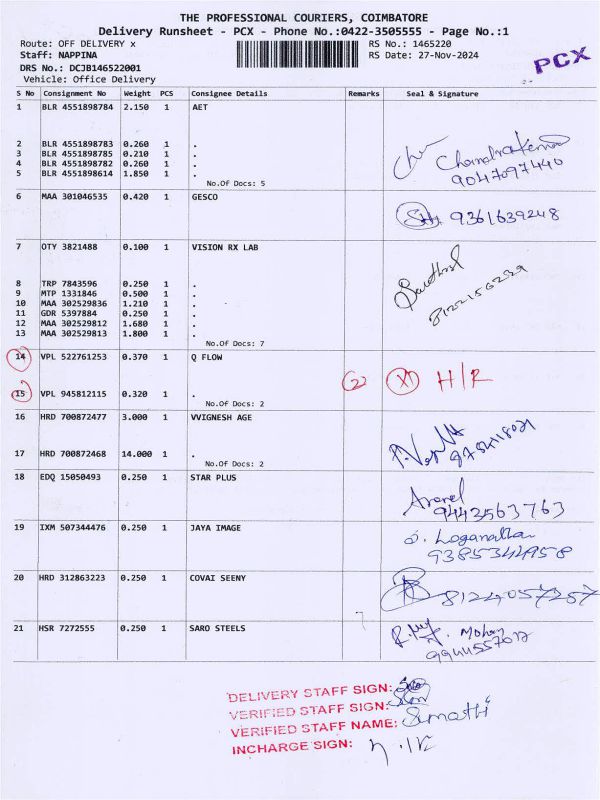 THE PROFESSIONAL COURIERS, COIMBATORE
Delivery Runsheet - PCX - Phone No.:0422-3505555 - Page No.:1
Route: OFF DELIVERY x RS No.: 1465220
Staff: NAPPINA RS Date: 27-Nov-2024
DRS No.: DCJB146522001
Vehicle: Office Delivery
PCX
S No Consignment No Weight PCS Consignee Details Remarks Seal & Signature
1 BLR 4551898784 2.150 1 AET
2 BLR 4551898783 0.260 1 .
3 BLR 4551898785 0.210 1 .
4 BLR 4551898782 0.260 1 .
5 BLR 4551898614 1.850 1 .
No.Of Docs: 5
9047097440
6 MAA 301046535 0.420 1 GESCO
9361639248
7 OTY 3821488 0.100 1 VISION RX LAB
8 TRP 7843596 0.250 1 .
9 MTP 1331846 0.500 1 .
10 MAA 302529836 1.210 1 .
11 GDR 5397884 0.250 1 .
12 MAA 302529812 1.680 1 .
13 MAA 302529813 1.800 1 .
No.Of Docs: 7
14 VPL 522761253 0.370 1 Q FLOW
2 H/R
15 VPL 945812115 0.320 1 .
No.Of Docs: 2
16 HRD 700872477 3.000 1 VVIGNESH AGE
17 HRD 700872468 14.000 1 .
No.Of Docs: 2
18 EDQ 15050493 0.250 1 STAR PLUS
9442563763
19 IXM 507344476 0.250 1 JAYA IMAGE
Loganathan
9385344958
20 HRD 312863223 0.250 1 COVAI SEENY
8124057257
21 HSR 7272555 0.250 1 SARO STEELS
Mohan
9944557012
DELIVERY STAFF SIGN:
VERIFIED STAFF SIGN:
VERIFIED STAFF NAME: Sumathi
INCHARGE SIGN: